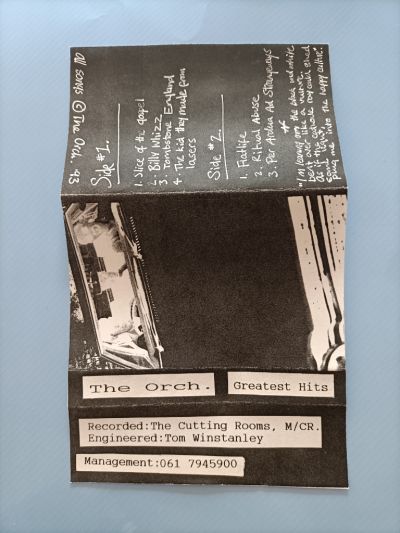 All songs @ The Orch. 93
Side #1.
1. Slice of the gospel
2. Billy Whizz
3. Tombstone England
4. The kid they made from
lasers
Side #2.
1. Flatlife
2. Ritual Abuse
3. Per Ardua Ad Strangeways
"I'm leaving
the black and white
bent over like a
as if the cathode ray could shed
some light,
plug me into the happy
The Orch.
Greatest Hits
Recorded:The Cutting Rooms, M/CR.
Engineered:Tom Winstanley
Management:061 7945900